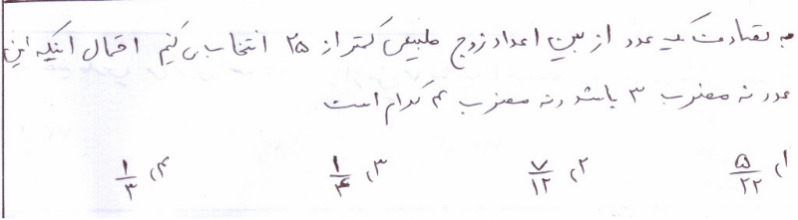 به تصادف یک عدد از بین اعداد زوج طبیعی کمتر از ۲۵ انتخاب می‌کنیم احتمال اینکه این
عدد نه مضرب ۳ باشد و نه مضرب ۴ کدام است
۱) ۵/۲۲ ۲) ۷/۱۲ ۳) ۱/۴ ۴) ۱/۳